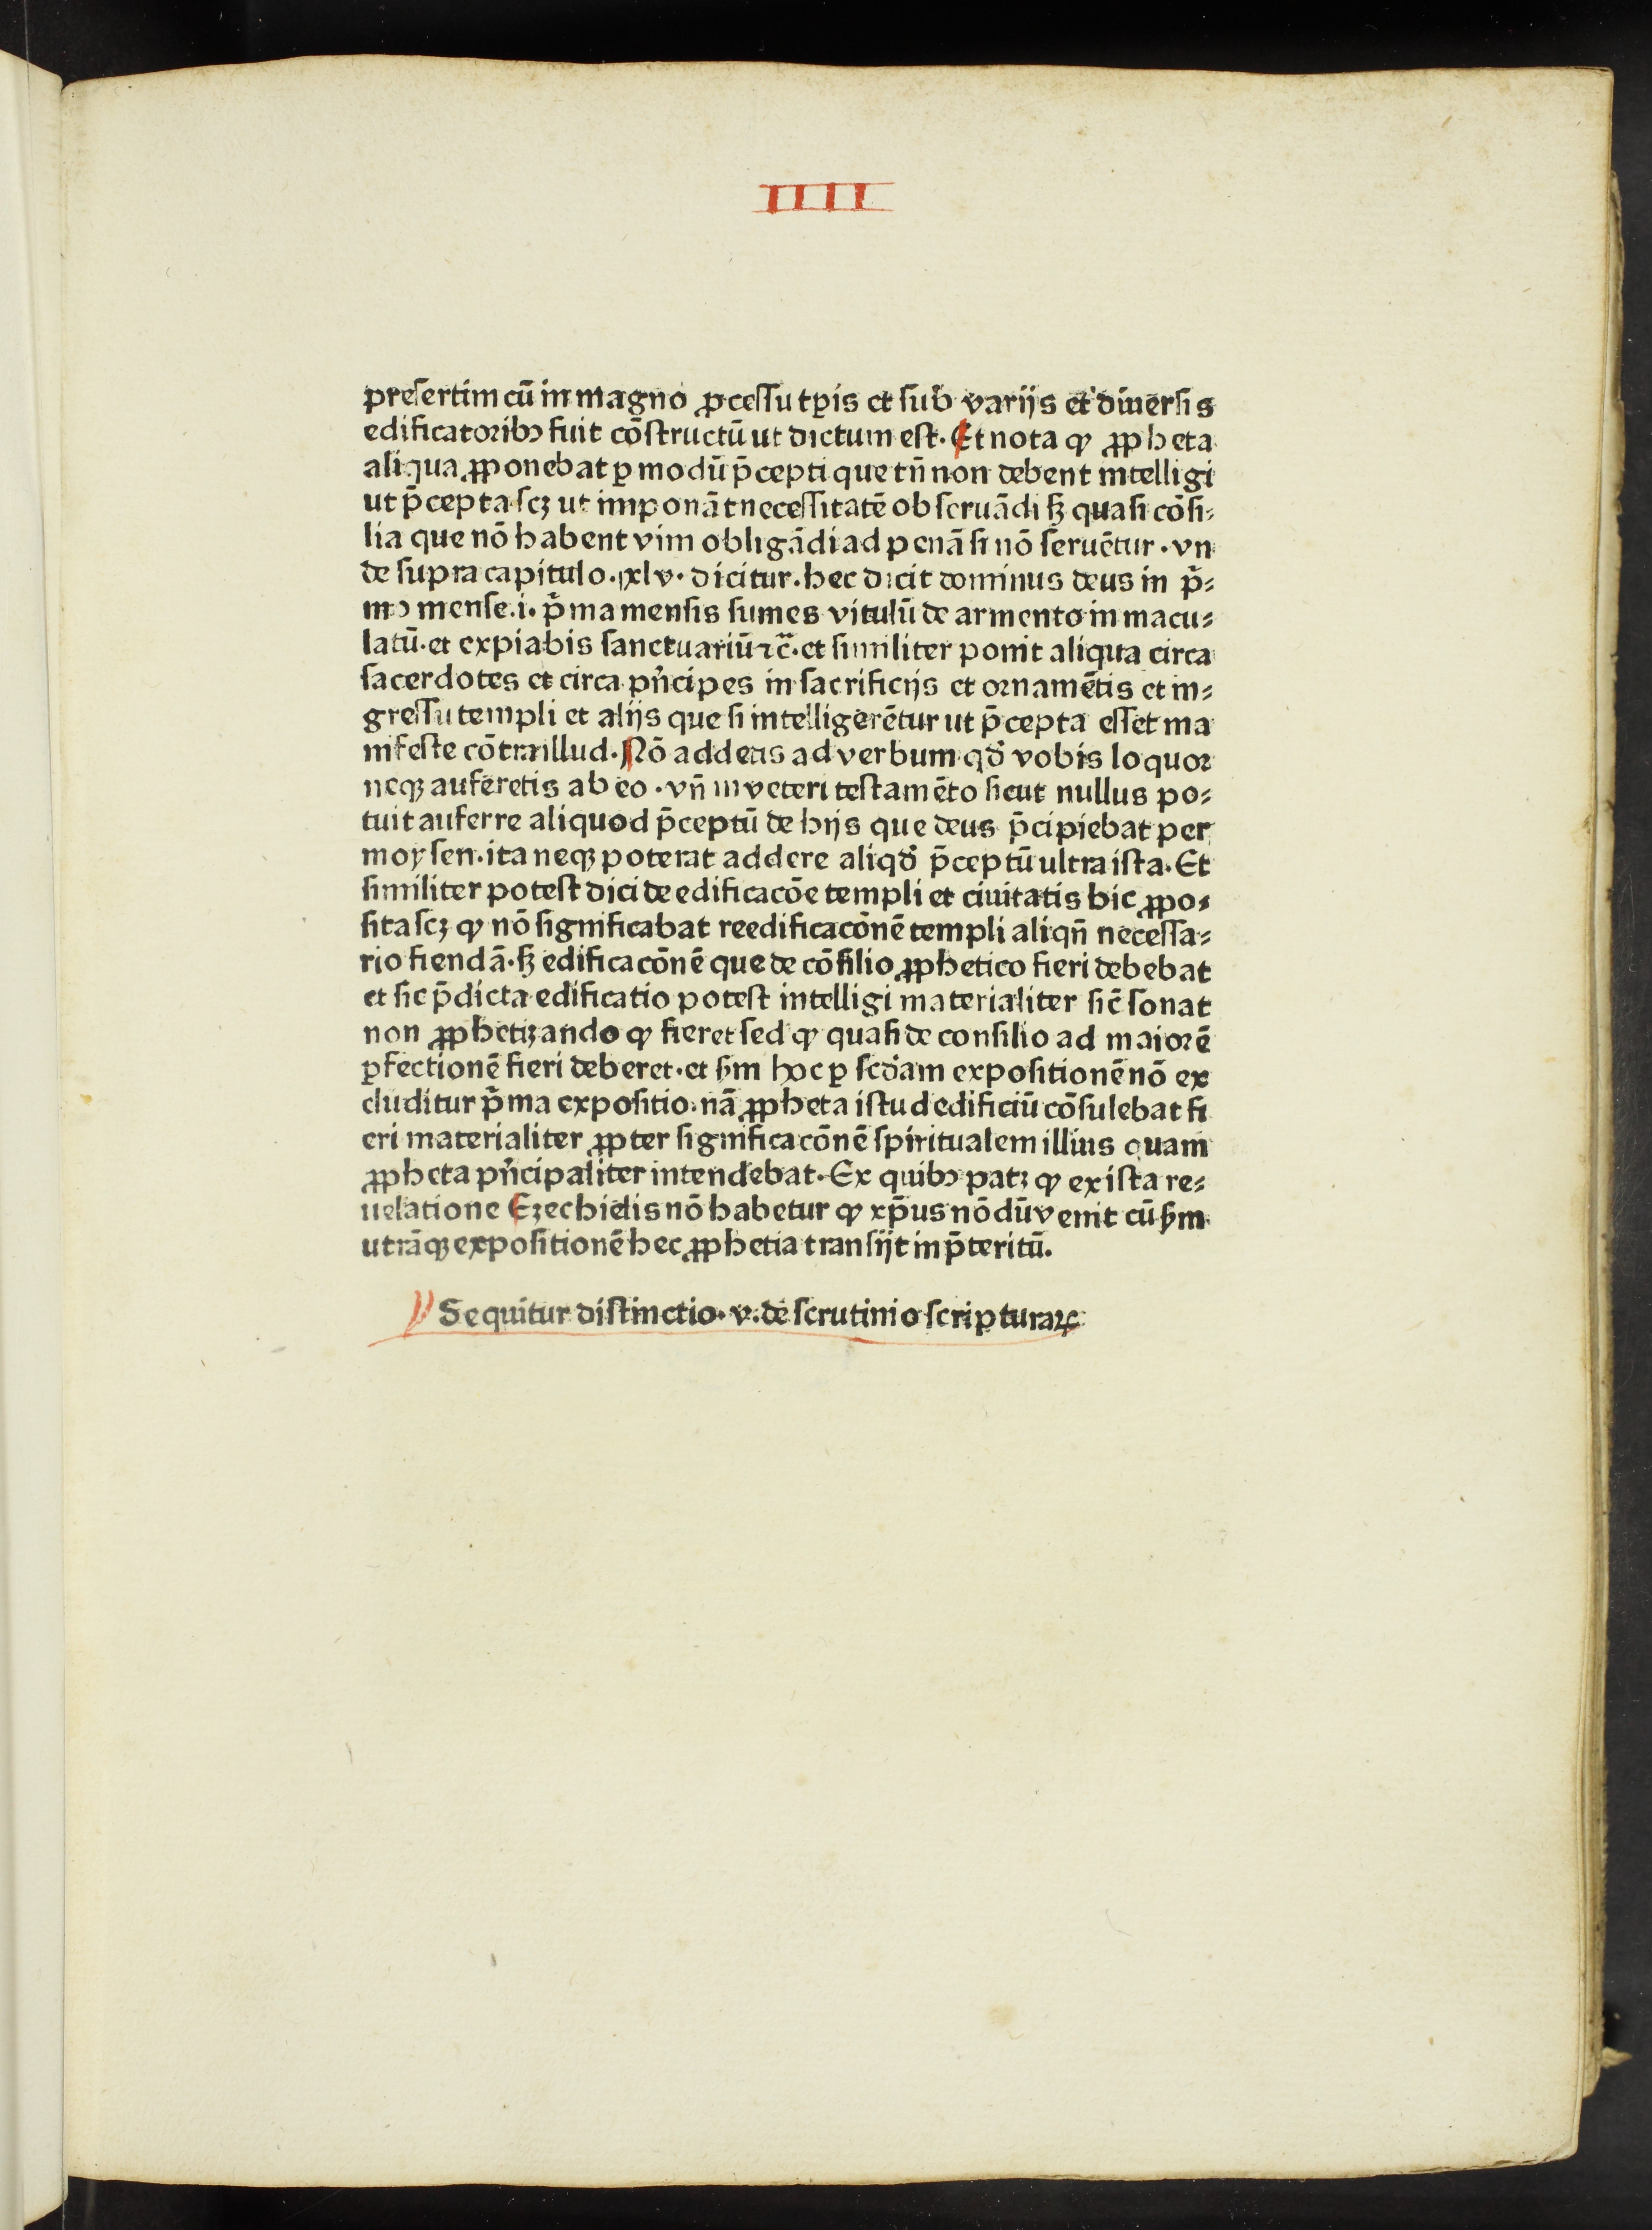 IIII
presertim cū in magno ꝓcessu tꝑis et sub varijs et diuersis
edificatoribꝰ fuit cōstructū ut dictum est. Et nota ꝙ ꝓpheta
aliqua ꝓponebat ꝑ modū p̄cepti que tn̄ non debent intelligi
ut p̄cepta scꝫ ut imponāt necessitatē obseruādi sꝫ quasi cōsi⸗
lia que nō habent vim obligādi ad penā si nō seruētur. vn
de supra capitulo. xlv. dicitur. hec dicit dominus deus in p̄⸗
mo mense .i. p̄ma mensis sumes vitulū de armento inmacu⸗
latū. et expiabis sanctuariū ⁊c̄. et similiter ponit aliqua circa
sacerdotes et circa pn̄cipes in sacrificijs et ornamētis et in⸗
gressu templi et alijs que si intelligerētur ut p̄cepta esset ma
nifeste cōtra illud. Nō addetis ad verbum qđ vobis loquor
neqꝫ auferetis ab eo. vn̄ in veteri testamēto sicut nullus po⸗
tuit auferre aliquod p̄ceptū de hijs que deus p̄cipiebat per
moysen. ita neqꝫ poterat addere aliqđ p̄ceptū ultra ista. Et
similiter potest dici de edificacōe templi et ciuitatis hic ꝓpo⸗
sita scꝫ ꝙ nō significabat reedificacōnē templi aliqn̄ necessa⸗
rio fiendā. sꝫ edificacōnē que de cōsilio ꝓphetico fieri debebat
et sic p̄dicta edificatio potest intelligi materialiter sic̄ sonat
non ꝓphetizando ꝙ fieret sed ꝙ quasi de consilio ad maiorē
ꝑfectionē fieri deberet. et s̄m hoc ꝑ scđam expositionē nō ex
cluditur p̄ma expositio. nā ꝓpheta istud edificiū cōsulebat fi
eri materialiter ꝓpter significacōnē spiritualem illius quam
ꝓpheta pn̄cipaliter intendebat. Ex quibꝰ patꝫ ꝙ ex ista re⸗
uelatione Ezechielis nō habetur ꝙ xp̄us nōdū venit cū s̄m
utrāqꝫ expositionē hec ꝓphetia transijt in p̄teritū.
Sequitur distinctio. v. de scrutinio scripturaꝝ